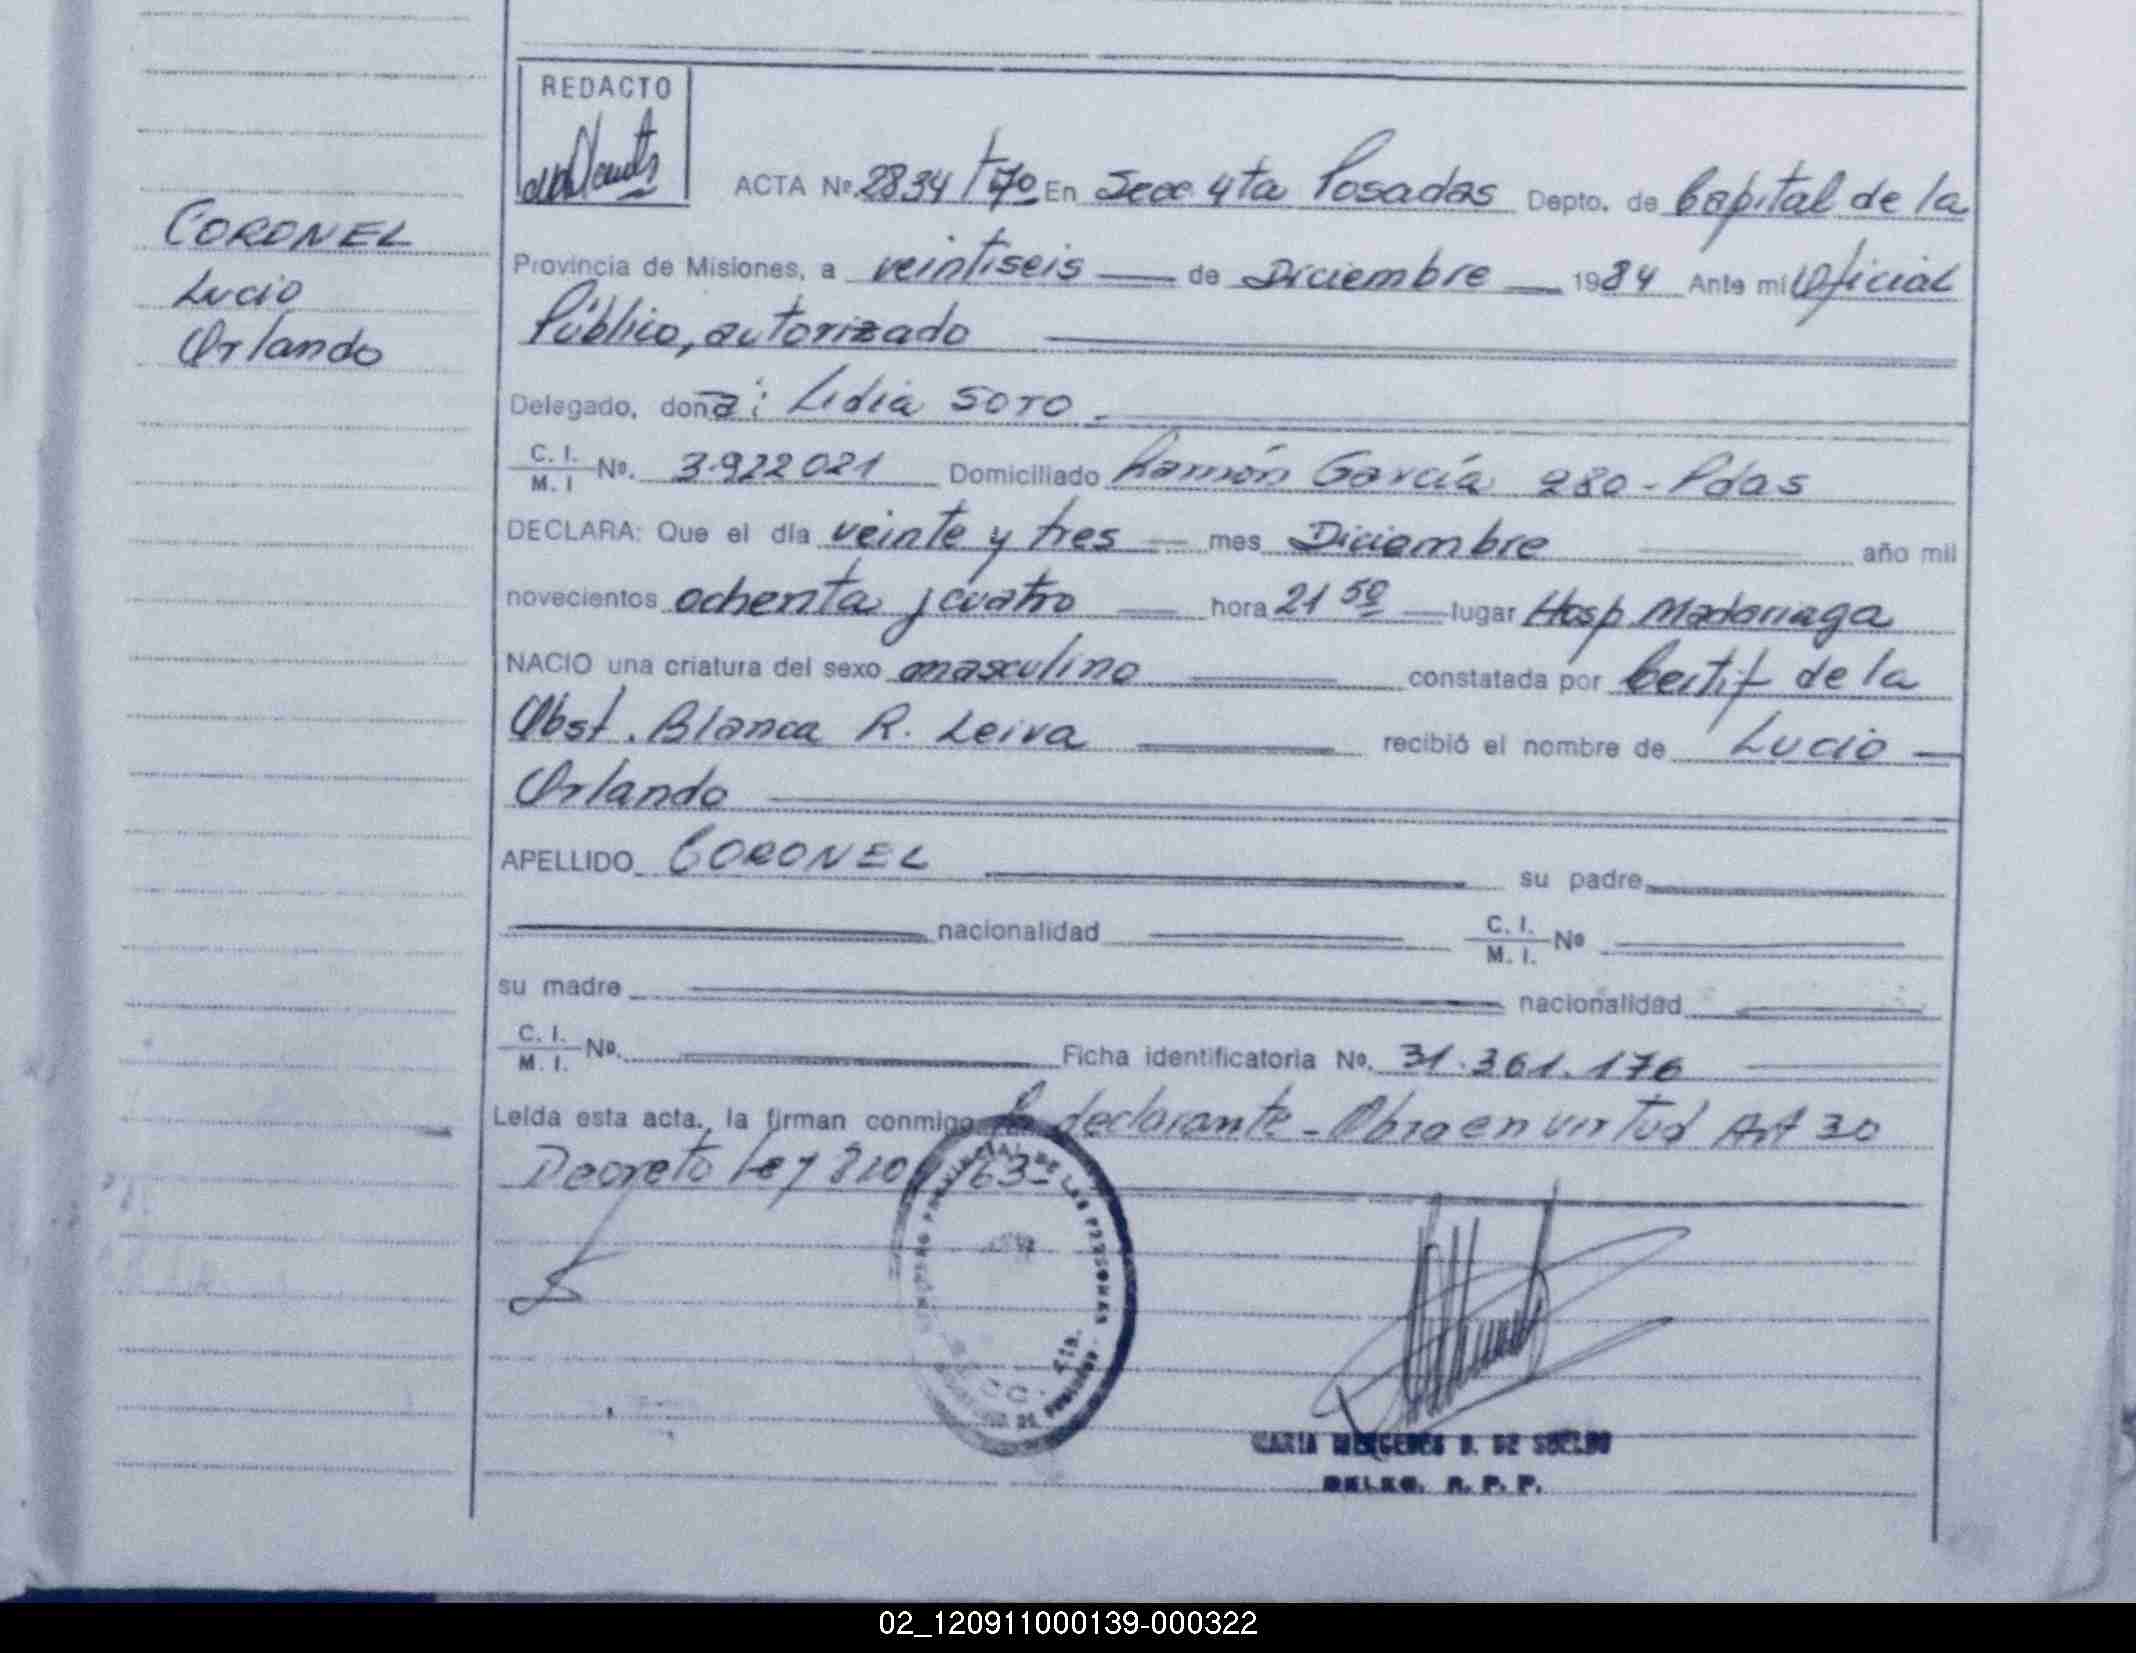 REDACTO
ACTA Nº. 2834 / Tº 7º En Secc 4ta Posadas Depto. de Capital de la
CORONEL
Lucio
Orlando
Provincia de Misiones, a veintiseis de Diciembre 1984 Ante mi Oficial
Público, autorizado
Delegado, donã: Lidia SOTO.
C. I.
M. I Nº. 3.922021 Domiciliado Ramón García 280 - Pdas
DECLARA: Que el día veinte y tres mes Diciembre año mil
novecientos ochenta y cuatro hora 21 50 lugar Hosp Madariaga
NACIO una criatura del sexo masculino constatada por Certif de la
Obst. Blanca R. Leiva recibió el nombre de Lucio
Orlando
APELLIDO CORONEL su padre
nacionalidad C. I.
M. I. Nº
su madre nacionalidad
C. I.
M. I. Nº. Ficha identificatoria Nº. 31.361.176
Leída esta acta, la firman conmigo la declarante - Obra en virtud Art 30
Decreto Ley 8204/63
PROVINCIAL DE LAS PERSONAS
SECC. 4ta.
MARIA MERCEDES D. DE SUELDO
DELEG. R. P. P.
02_120911000139-000322